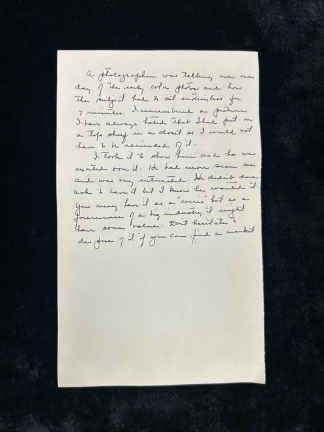 A photographer was telling me one
day of the early color photos and how
the subject had to sit motionless for
minutes. I remembered a picture
I have always hated that I had put on
a top shelf in a closet so I would not
have to be reminded of it.
I took it to show him and he was
excited over it. He had never seen one
and was very interested. He didn't dare
ask to have it but I knew he wanted it
You may have it as a "curio" but as a
forerunner of a big industry it might
have some value. Don't hesitate to
dispose of it if you can find a market